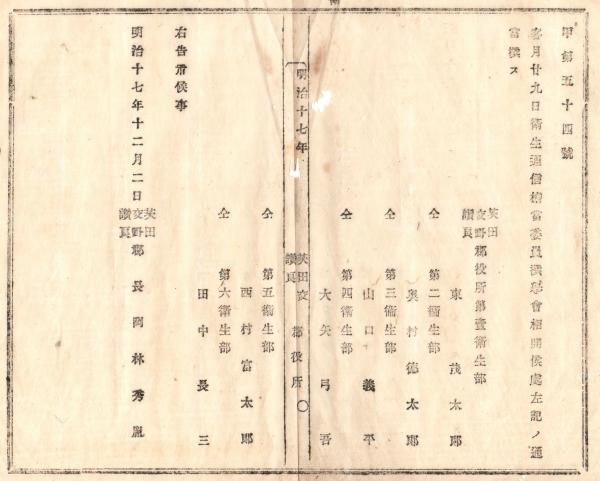 甲第五十四號
客月廿九日衛生通信擔當委員撰擧會相開候處左記ノ通
當撰ス
茨田
交野郡役所第壹衛生部
讃良
東茂太郎
仝 第二衛生部
奥村德太郎
仝 第三衛生部
山口義平
仝 第四衛生部
大矢弓吾
明治十七年
茨田交
讃良 郡役所
仝 第五衛生部
西村富太郎
仝 第六衛生部
田中長三
右告示候事
明治十七年十二月二日
茨田
交野郡長岡林秀胤
讃良